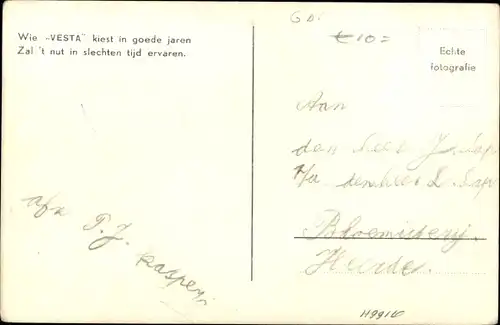 Wie „VESTA” kiest in goede jaren
Zal 't nut in slechten tijd ervaren.
€ 10 =
Echte
fotografie
Aan
den heer J.
p/a den heer L.
Bloemisterij
Heerde.
afz
P. J.
H991V